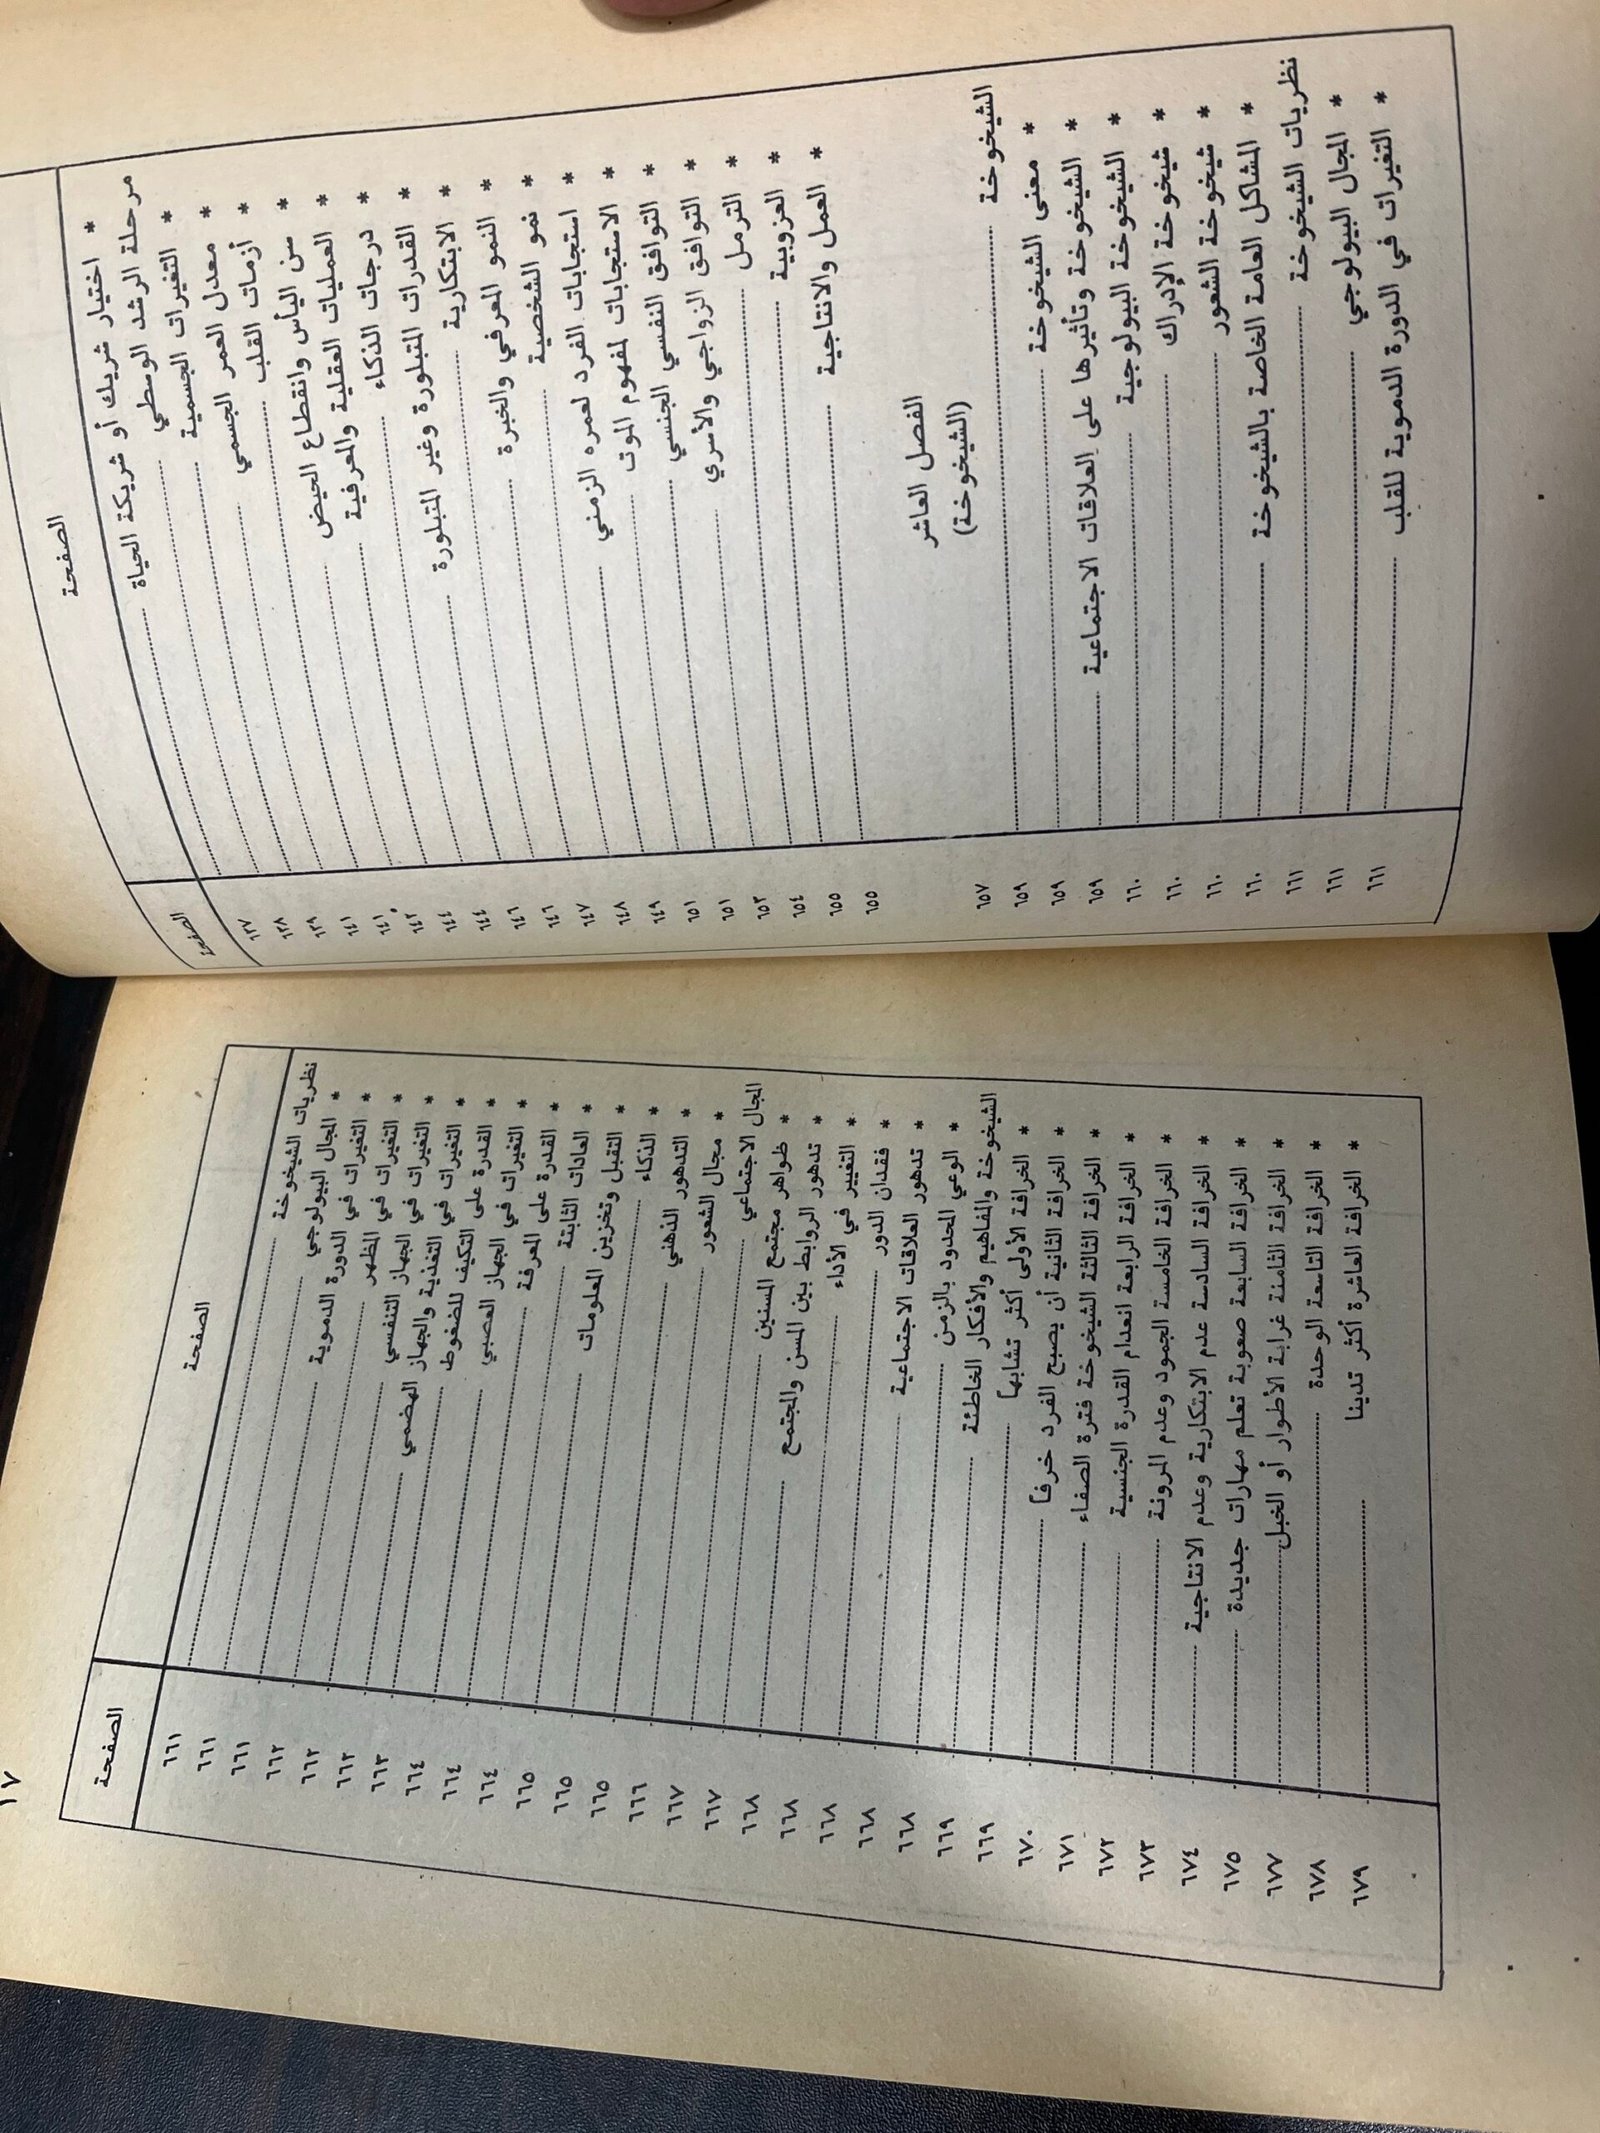 الصفحة الصفحة
* اختيار شريك أو شريكة الحياة ٦٣٧
مرحلة الرشد الوسطي ٦٣٨
* التغيرات الجسمية ٦٣٩
* معدل العمر الجسمي ٦٤١
* أزمات القلب ٦٤١
* سن اليأس وانقطاع الحيض ٦٤٢
* العمليات العقلية والمعرفية ٦٤٤
* درجات الذكاء ٦٤٤
* القدرات المتبلورة وغير المتبلورة ٦٤٦
* الابتكارية ٦٤٦
* النمو المعرفي والخبرة ٦٤٧
* نمو الشخصية ٦٤٨
* استجابات الفرد لعمره الزمني ٦٤٩
* الاستجابات لمفهوم الموت ٦٥١
* التوافق النفسي الجنسي ٦٥١
* التوافق الزواجي والأسري ٦٥٣
* الترمل ٦٥٤
* العزوبية ٦٥٥
* العمل والانتاجية ٦٥٥
الفصل العاشر
(الشيخوخة)
الشيخوخة ٦٥٧
* معنى الشيخوخة ٦٥٩
* الشيخوخة وتأثيرها على العلاقات الاجتماعية ٦٥٩
* الشيخوخة البيولوجية ٦٥٩
* شيخوخة الإدراك ٦٦٠
* شيخوخة الشعور ٦٦٠
* المشاكل العامة الخاصة بالشيخوخة ٦٦٠
نظريات الشيخوخة ٦٦٠
* المجال البيولوجي ٦٦١
* التغيرات في الدورة الدموية للقلب ٦٦١
٦٦١
١٧
الصفحة الصفحة
نظريات الشيخوخة ٦٦١
* المجال البيولوجي ٦٦١
* التغيرات في الدورة الدموية ٦٦١
* التغيرات في المظهر ٦٦٢
* التغيرات في الجهاز التنفسي ٦٦٢
* التغيرات في التغذية والجهاز الهضمي ٦٦٢
* القدرة على التكيف للضغوط ٦٦٣
* التغيرات في الجهاز العصبي ٦٦٤
* القدرة على المعرفة ٦٦٤
* العادات الثابتة ٦٦٤
* التقبل وتخزين المعلومات ٦٦٥
* الذكاء ٦٦٥
* التدهور الذهني ٦٦٥
* مجال الشعور ٦٦٦
المجال الاجتماعي ٦٦٧
* ظواهر مجتمع المسنين ٦٦٧
* تدهور الروابط بين المسن والمجتمع ٦٦٨
* التغيير في الأداء ٦٦٨
* فقدان الدور ٦٦٨
* تدهور العلاقات الاجتماعية ٦٦٨
* الوعي المحدود بالزمن ٦٦٨
الشيخوخة والمفاهيم والأفكار الخاطئة ٦٦٩
* الخرافة الأولى أكثر تشابهاً ٦٦٩
* الخرافة الثانية أن يصبح الفرد خرفاً ٦٧٠
* الخرافة الثالثة الشيخوخة فترة الصفاء ٦٧١
* الخرافة الرابعة انعدام القدرة الجنسية ٦٧٢
* الخرافة الخامسة الجمود وعدم المرونة ٦٧٣
* الخرافة السادسة عدم الابتكارية وعدم الانتاجية ٦٧٤
* الخرافة السابعة صعوبة تعلم مهارات جديدة ٦٧٥
* الخرافة الثامنة غرابة الأطوار أو الخبل ٦٧٧
* الخرافة التاسعة الوحدة ٦٧٨
* الخرافة العاشرة أكثر تدينا ٦٧٩